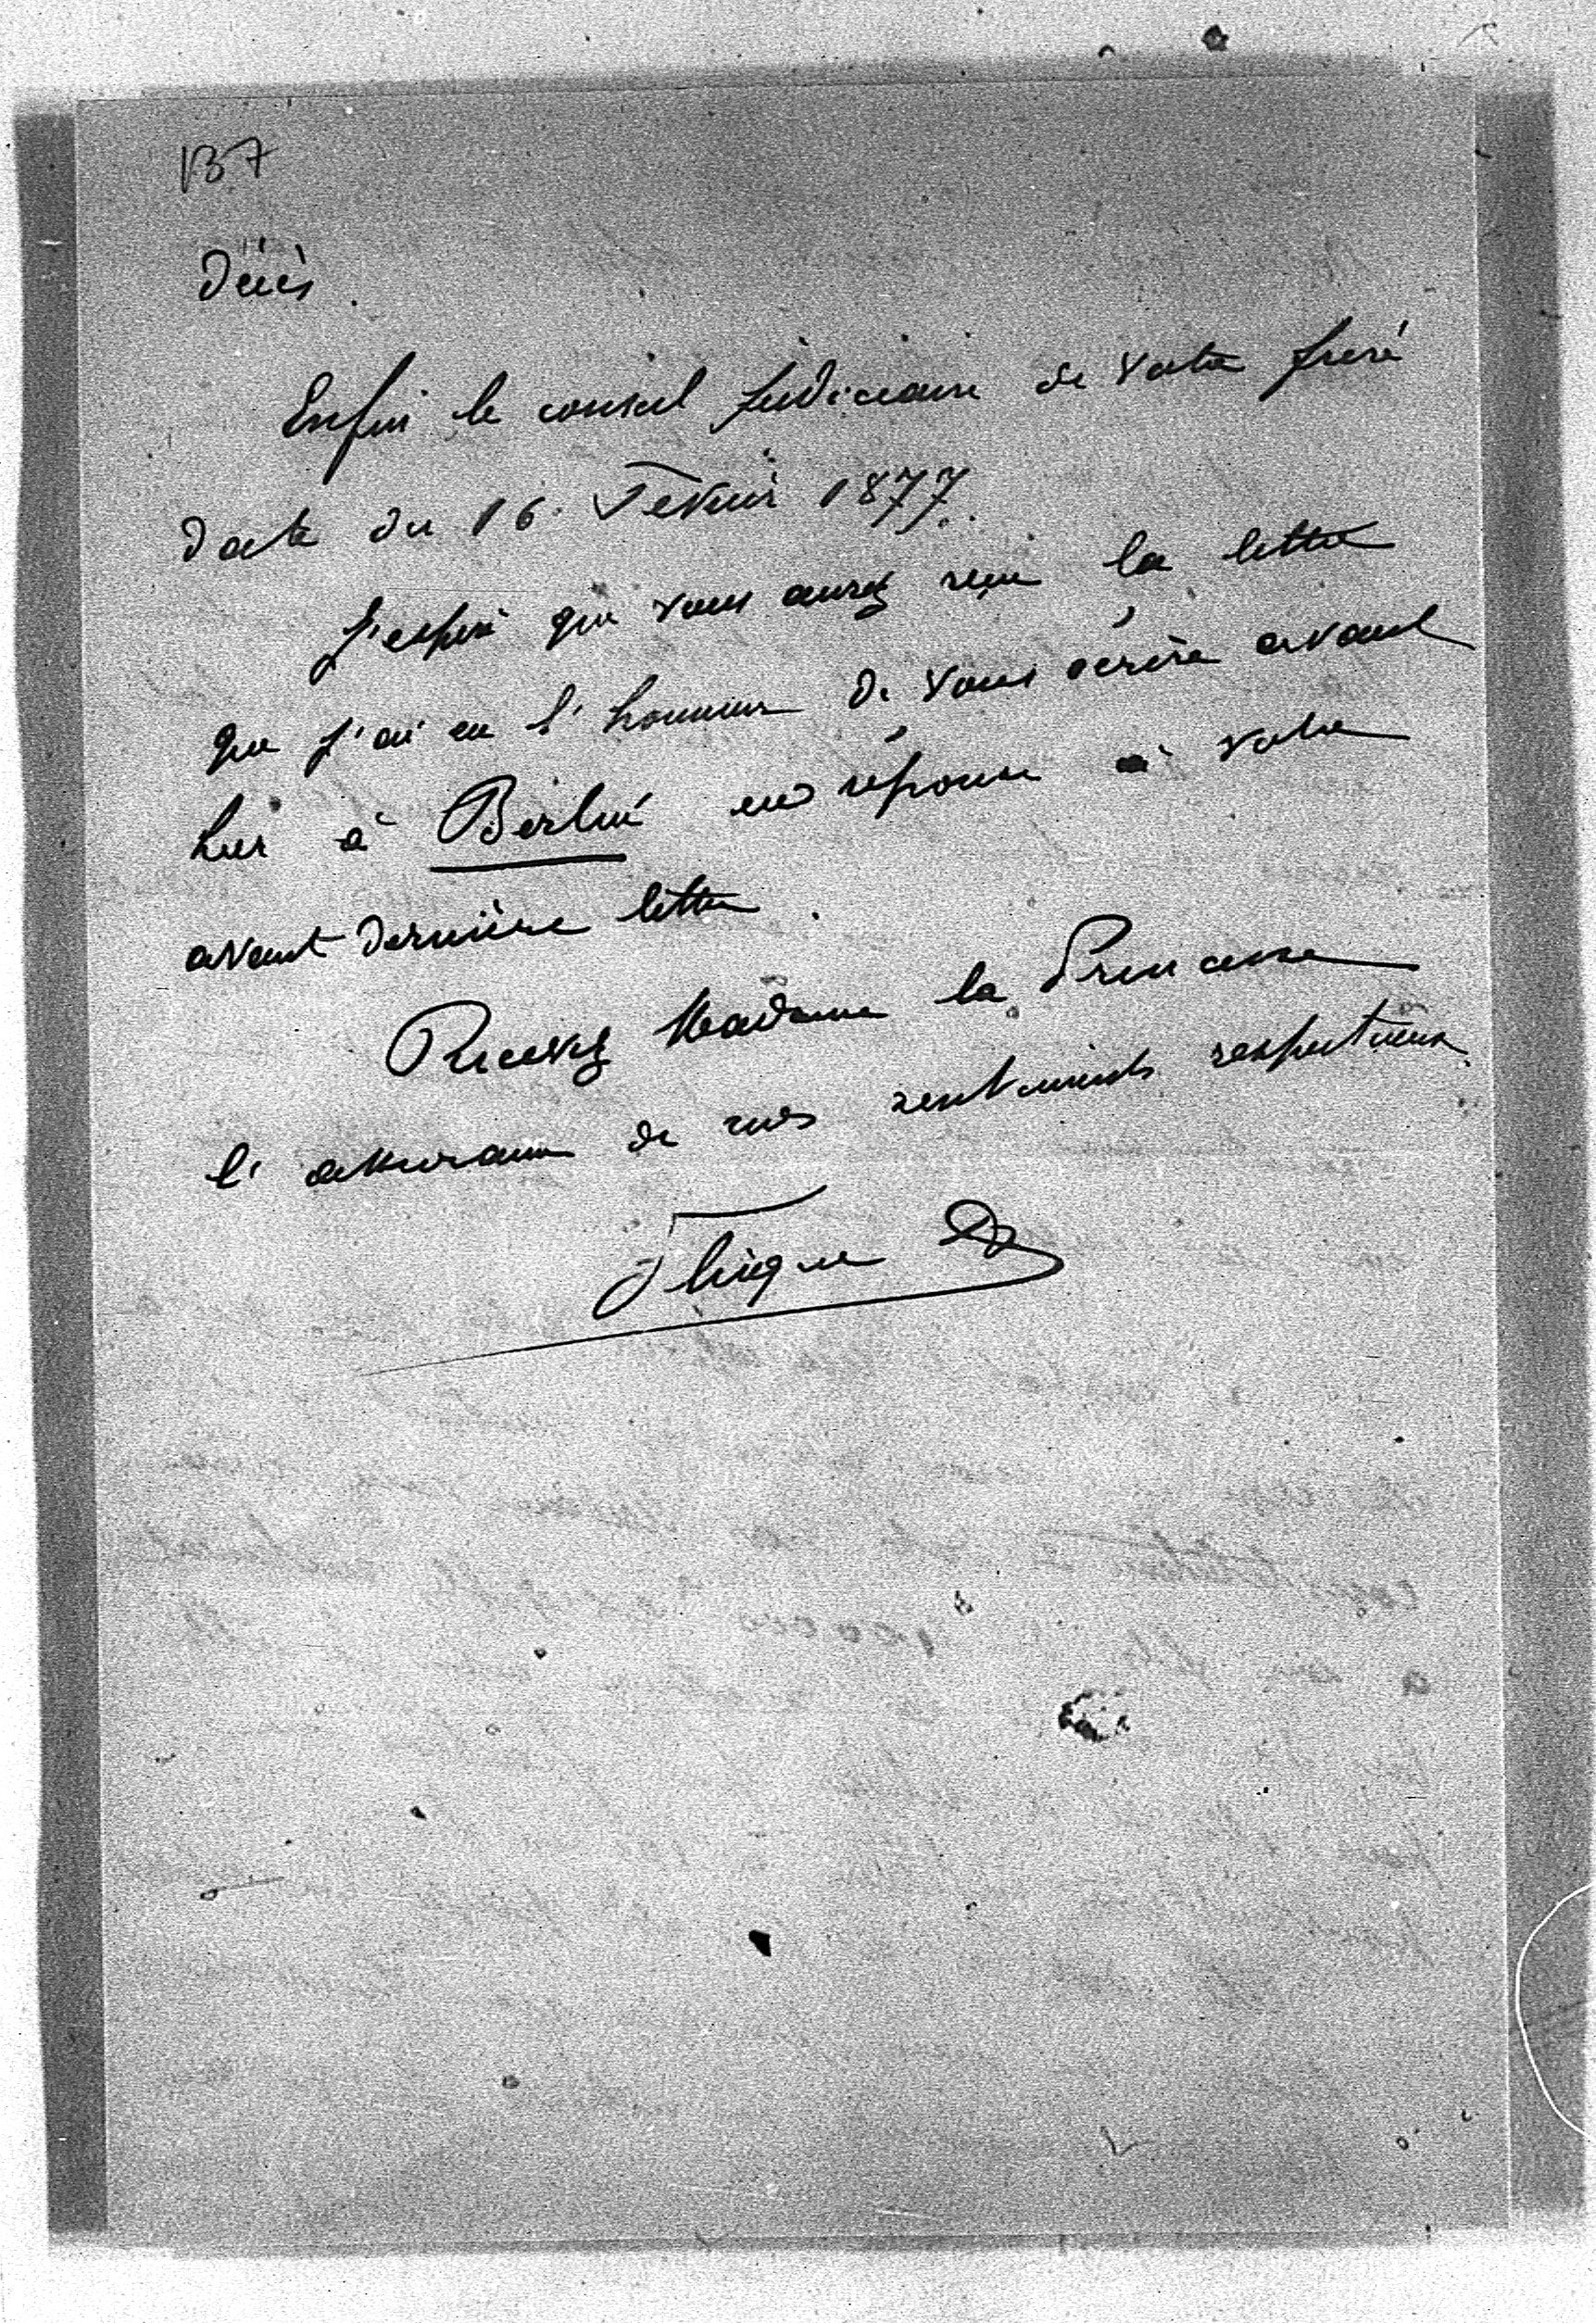 137
Décès.
Enfin le conseil judiciaire de votre frère
date du 16 Fevrier 1877.
J'espère que vous aurez reçu la lettre
que j'ai eu l'honneur de vous écrire avant
hier à Berlin en réponse à votre
avant dernière lettre.
Recevez Madame la Princesse
l'assurance de mes sentiments respectueux